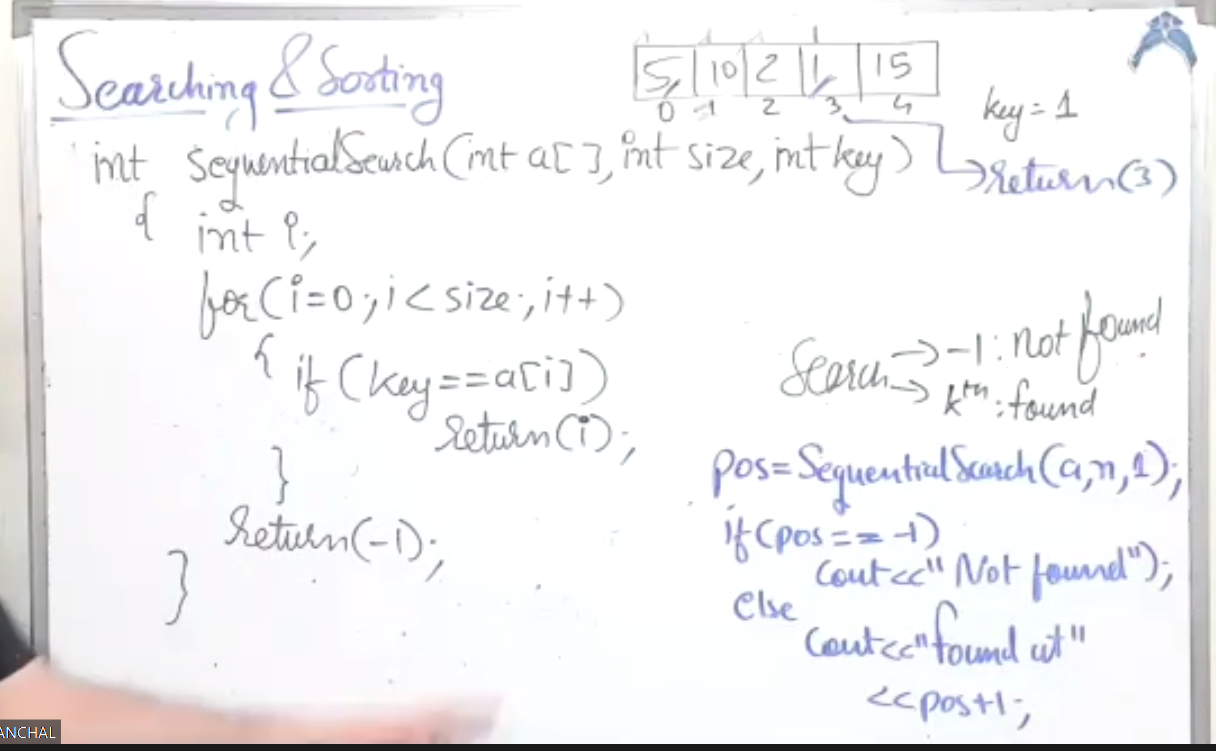 Searching & Sorting
5 10 2 1 15
0 1 2 3 4
key = 1
int SequentialSearch(int a[], int size, int key)
→return(3)
{ int i;
for(i=0; i<size; i++)
{ if (key==a[i])
return(i);
}
return(-1);
}
Search → -1: not found
→ kth: found
pos=SequentialSearch(a,n,1);
if(pos==-1)
cout<<"Not found");
else
cout<<"found at"
<<pos+1;
ANCHAL